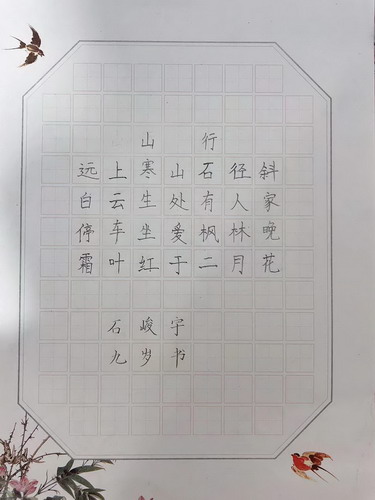 山行
远上寒山石径斜
白云生处有人家
停车坐爱枫林晚
霜叶红于二月花
石峻宇
九岁书